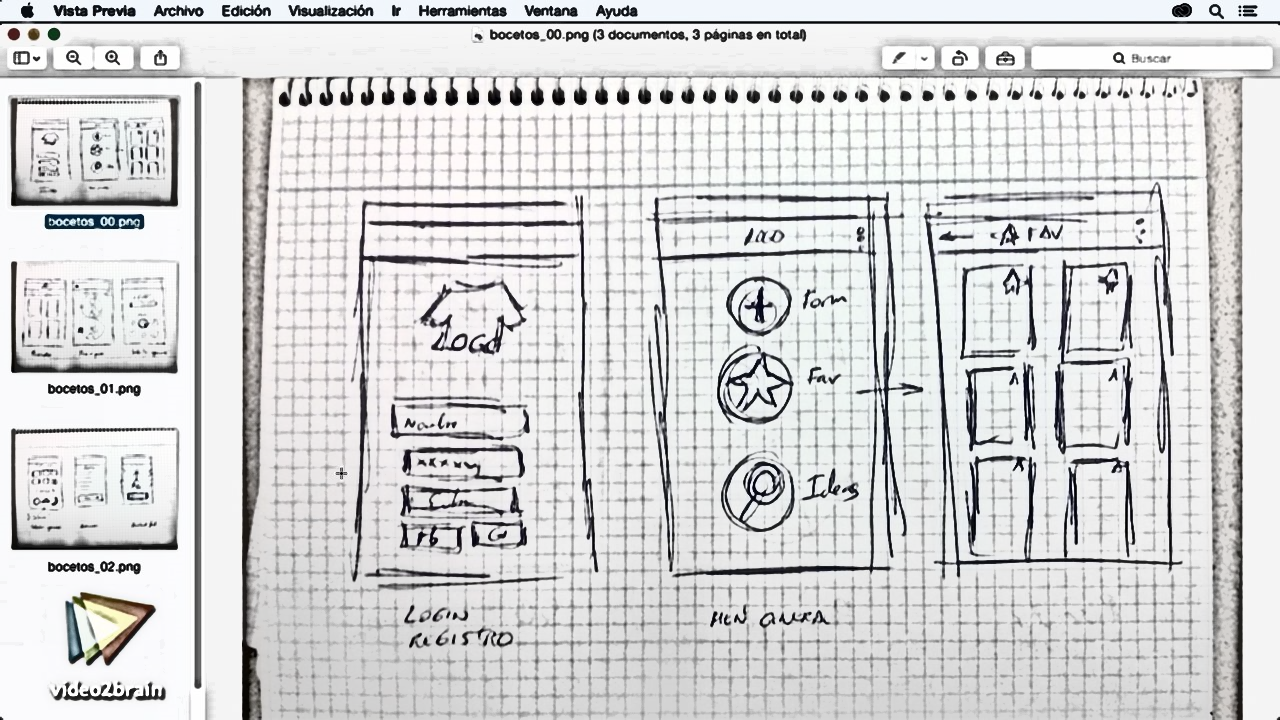 Vista Previa Archivo Edición Visualización Ir Herramientas Ventana Ayuda
bocetos_00.png (3 documentos, 3 páginas en total)
Buscar
bocetos_00.png
bocetos_01.png
bocetos_02.png
video2brain
LOGO
Nombre
xxxxxx
Entrar
Fb
G+
LOGIN
REGISTRO
LOGO
Form
Fav
Ideas
FAV